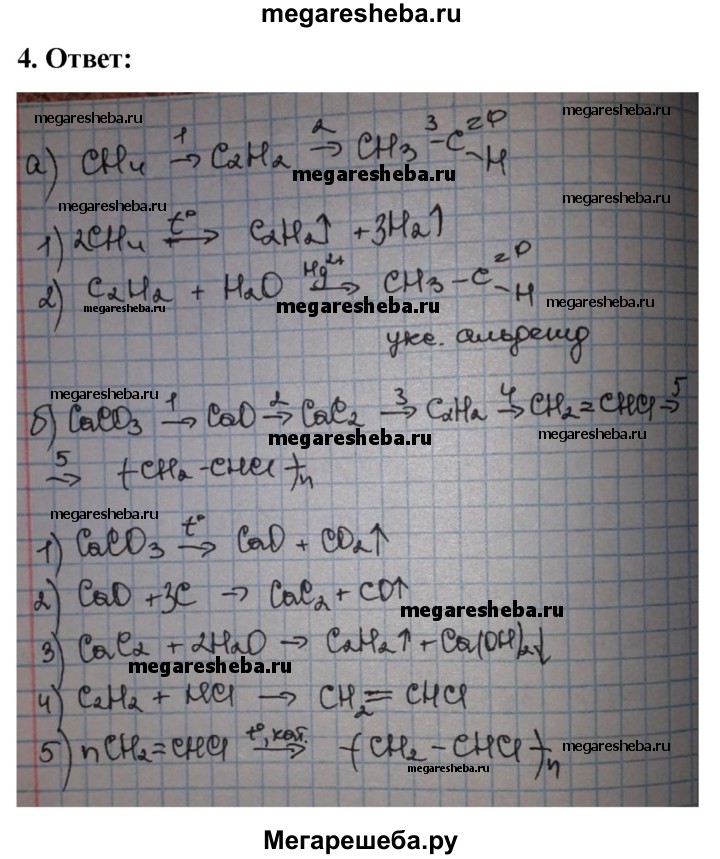 megaresheba.ru
4. Ответ:
megaresheba.ru megaresheba.ru
а) CH₄ →¹ C₂H₂ →² CH₃ -³ C =O -H
megaresheba.ru
megaresheba.ru
1) 2CH₄ →t° C₂H₂↑ + 3H₂↑
megaresheba.ru
2) C₂H₂ + H₂O →Hg²⁺ CH₃ - C =O -H
megaresheba.ru megaresheba.ru megaresheba.ru
укс. альдегид
megaresheba.ru
б) CaCO₃ →¹ CaO →² CaC₂ →³ C₂H₂ →⁴ CH₂=CHCl →⁵
megaresheba.ru megaresheba.ru
→⁵ (-CH₂-CHCl-)n
megaresheba.ru
1) CaCO₃ →t° CaO + CO₂↑
megaresheba.ru
2) CaO + 3C → CaC₂ + CO↑
megaresheba.ru
3) CaC₂ + 2H₂O → C₂H₂↑ + Ca(OH)₂↓
megaresheba.ru
4) C₂H₂ + HCl → CH₂=CHCl
5) nCH₂=CHCl →t°, кат. (-CH₂-CHCl-)n
megaresheba.ru
megaresheba.ru
Мегарешеба.ру